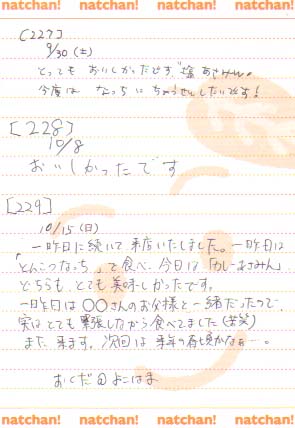 natchan! natchan! natchan! natchan!
[227]
9/30(土)
とっても おいしかったです 塩 あさみん。
今度は なっちに ちょうせんしたいです!
[228]
10/8
おいしかったです
[229]
10/15(日)
一昨日に続いて 来店いたしました。一昨日は
「とんこつなっち」で食べ、今日は「カレーあさみん」
どちらも とても美味しかったです。
一昨日は ○○さんのお父様と一緒だったので、
実は とても緊張しながら食べてました(苦笑)
また 来ます。次回は 来年の春頃かなぁ…。
おくだ@よこはま
natchan! natchan! natchan! natchan!